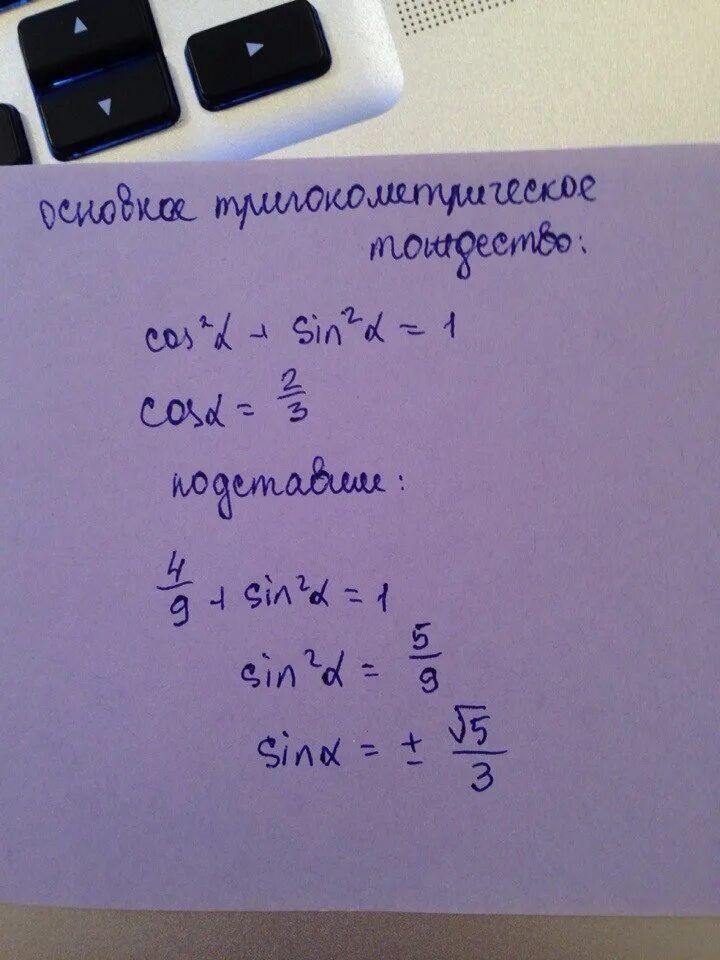 основное тригонометрическое
тождество:
cos²α + sin²α = 1
cosα = 2/3
подставим:
4/9 + sin²α = 1
sin²α = 5/9
sinα = ± √5/3